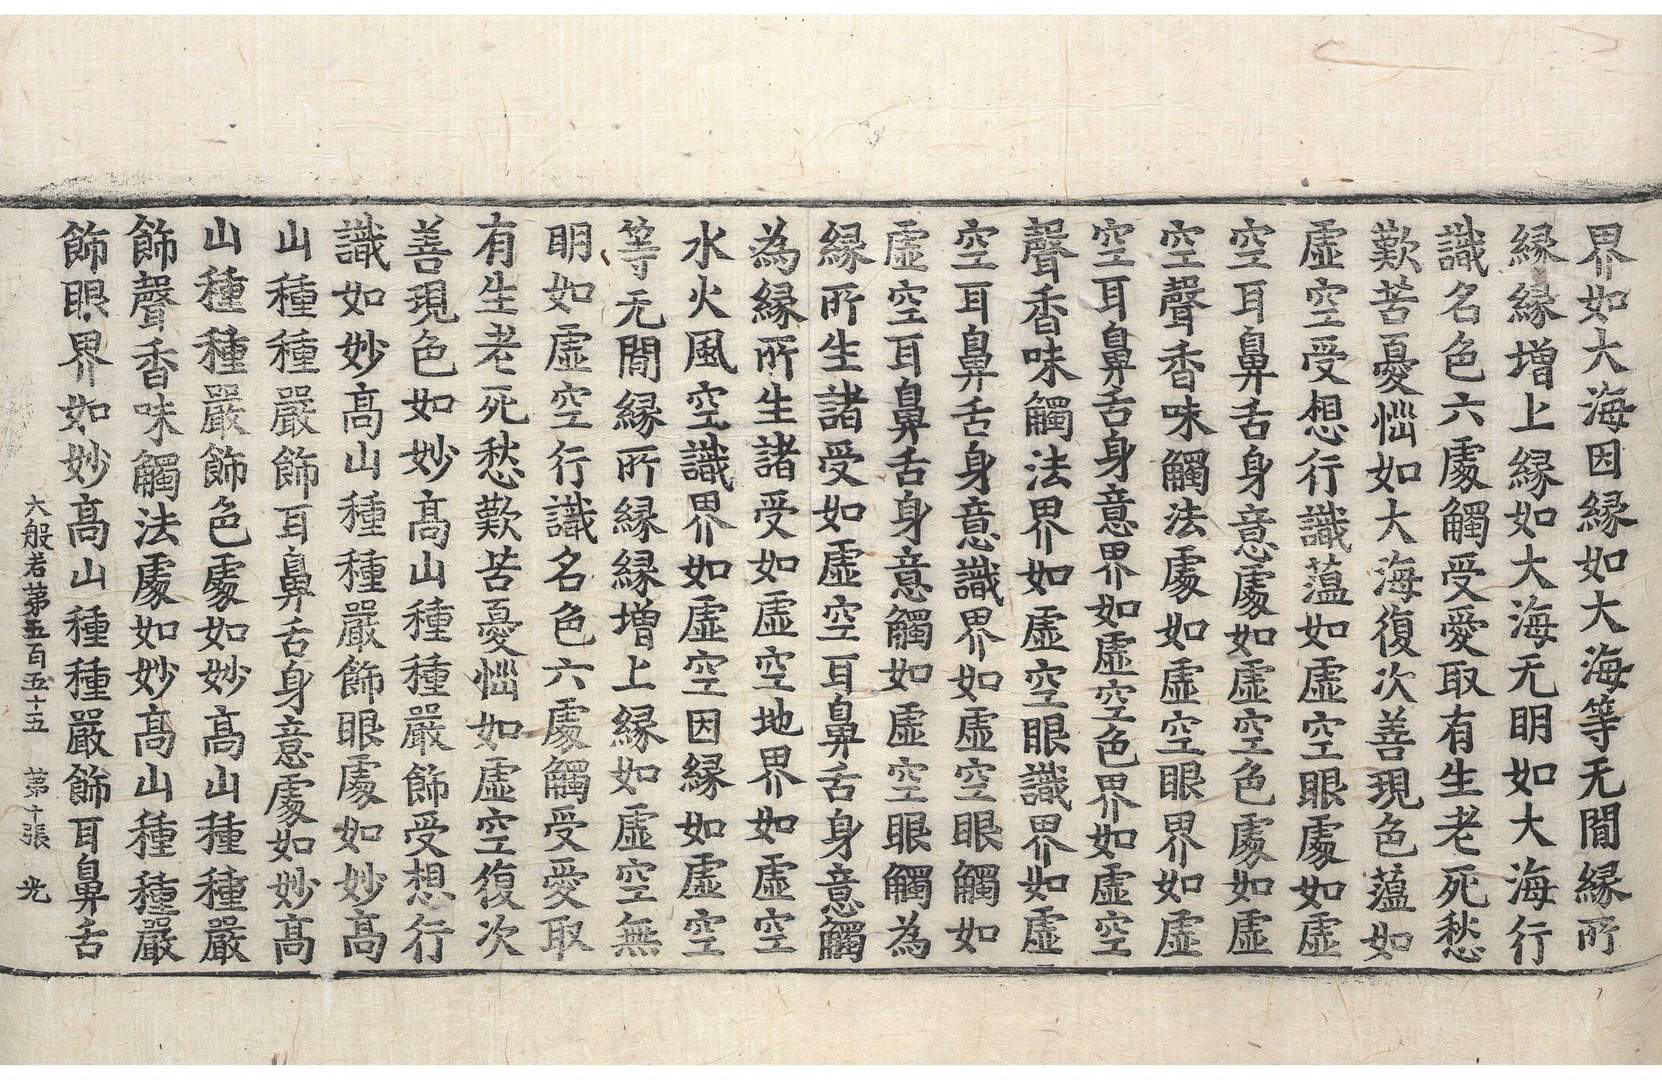 界如大海因縁如大海等无間縁所
縁縁增上縁如大海无明如大海行
識名色六處觸受愛取有生老死愁
歎苦憂惱如大海復次善現色薀如
虛空受想行識薀如虛空眼處如虛
空耳鼻舌身意處如虛空色處如虛
空聲香味觸法處如虛空眼界如虛
空耳鼻舌身意界如虛空色界如虛空
聲香味觸法界如虛空眼識界如虛
空耳鼻舌身意識界如虛空眼觸如
虛空耳鼻舌身意觸如虛空眼觸為
縁所生諸受如虛空耳鼻舌身意觸
為縁所生諸受如虛空地界如虛空
水火風空識界如虛空因縁如虛空
等无間縁所縁縁增上縁如虛空無
明如虛空行識名色六處觸受愛取
有生老死愁歎苦憂惱如虛空復次
善現色如妙高山種種嚴飾受想行
識如妙高山種種嚴飾眼處如妙高
山種種嚴飾耳鼻舌身意處如妙高
山種種嚴飾色處如妙高山種種嚴
飾聲香味觸法處如妙高山種種嚴
飾眼界如妙高山種種嚴飾耳鼻舌
大般若第五百五十五 第十張 光